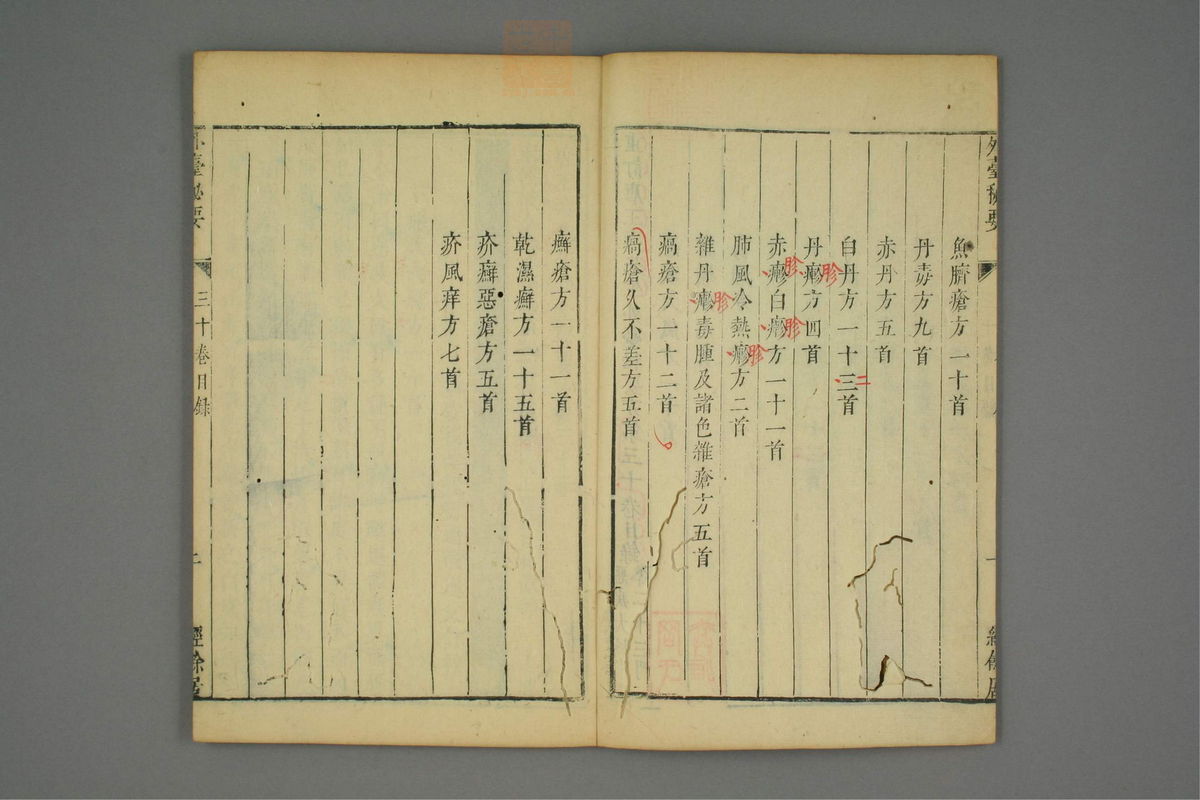 外臺秘要
一
經餘居
魚臍瘡方一十首
丹毒方九首
赤丹方五首
白丹方一十三首
二
丹㿀方四首
胗
赤㿀白㿀方一十一首
胗
胗
肺風冷熱㿀方二首
胗
雜丹㿀毒腫及諸色雜瘡方五首
胗
瘑瘡方一十二首
瘑瘡久不差方五首
癬瘡方一十一首
乾濕癬方一十五首
疥癬惡瘡方五首
疥風痒方七首
外臺秘要
三十卷目錄
經餘居